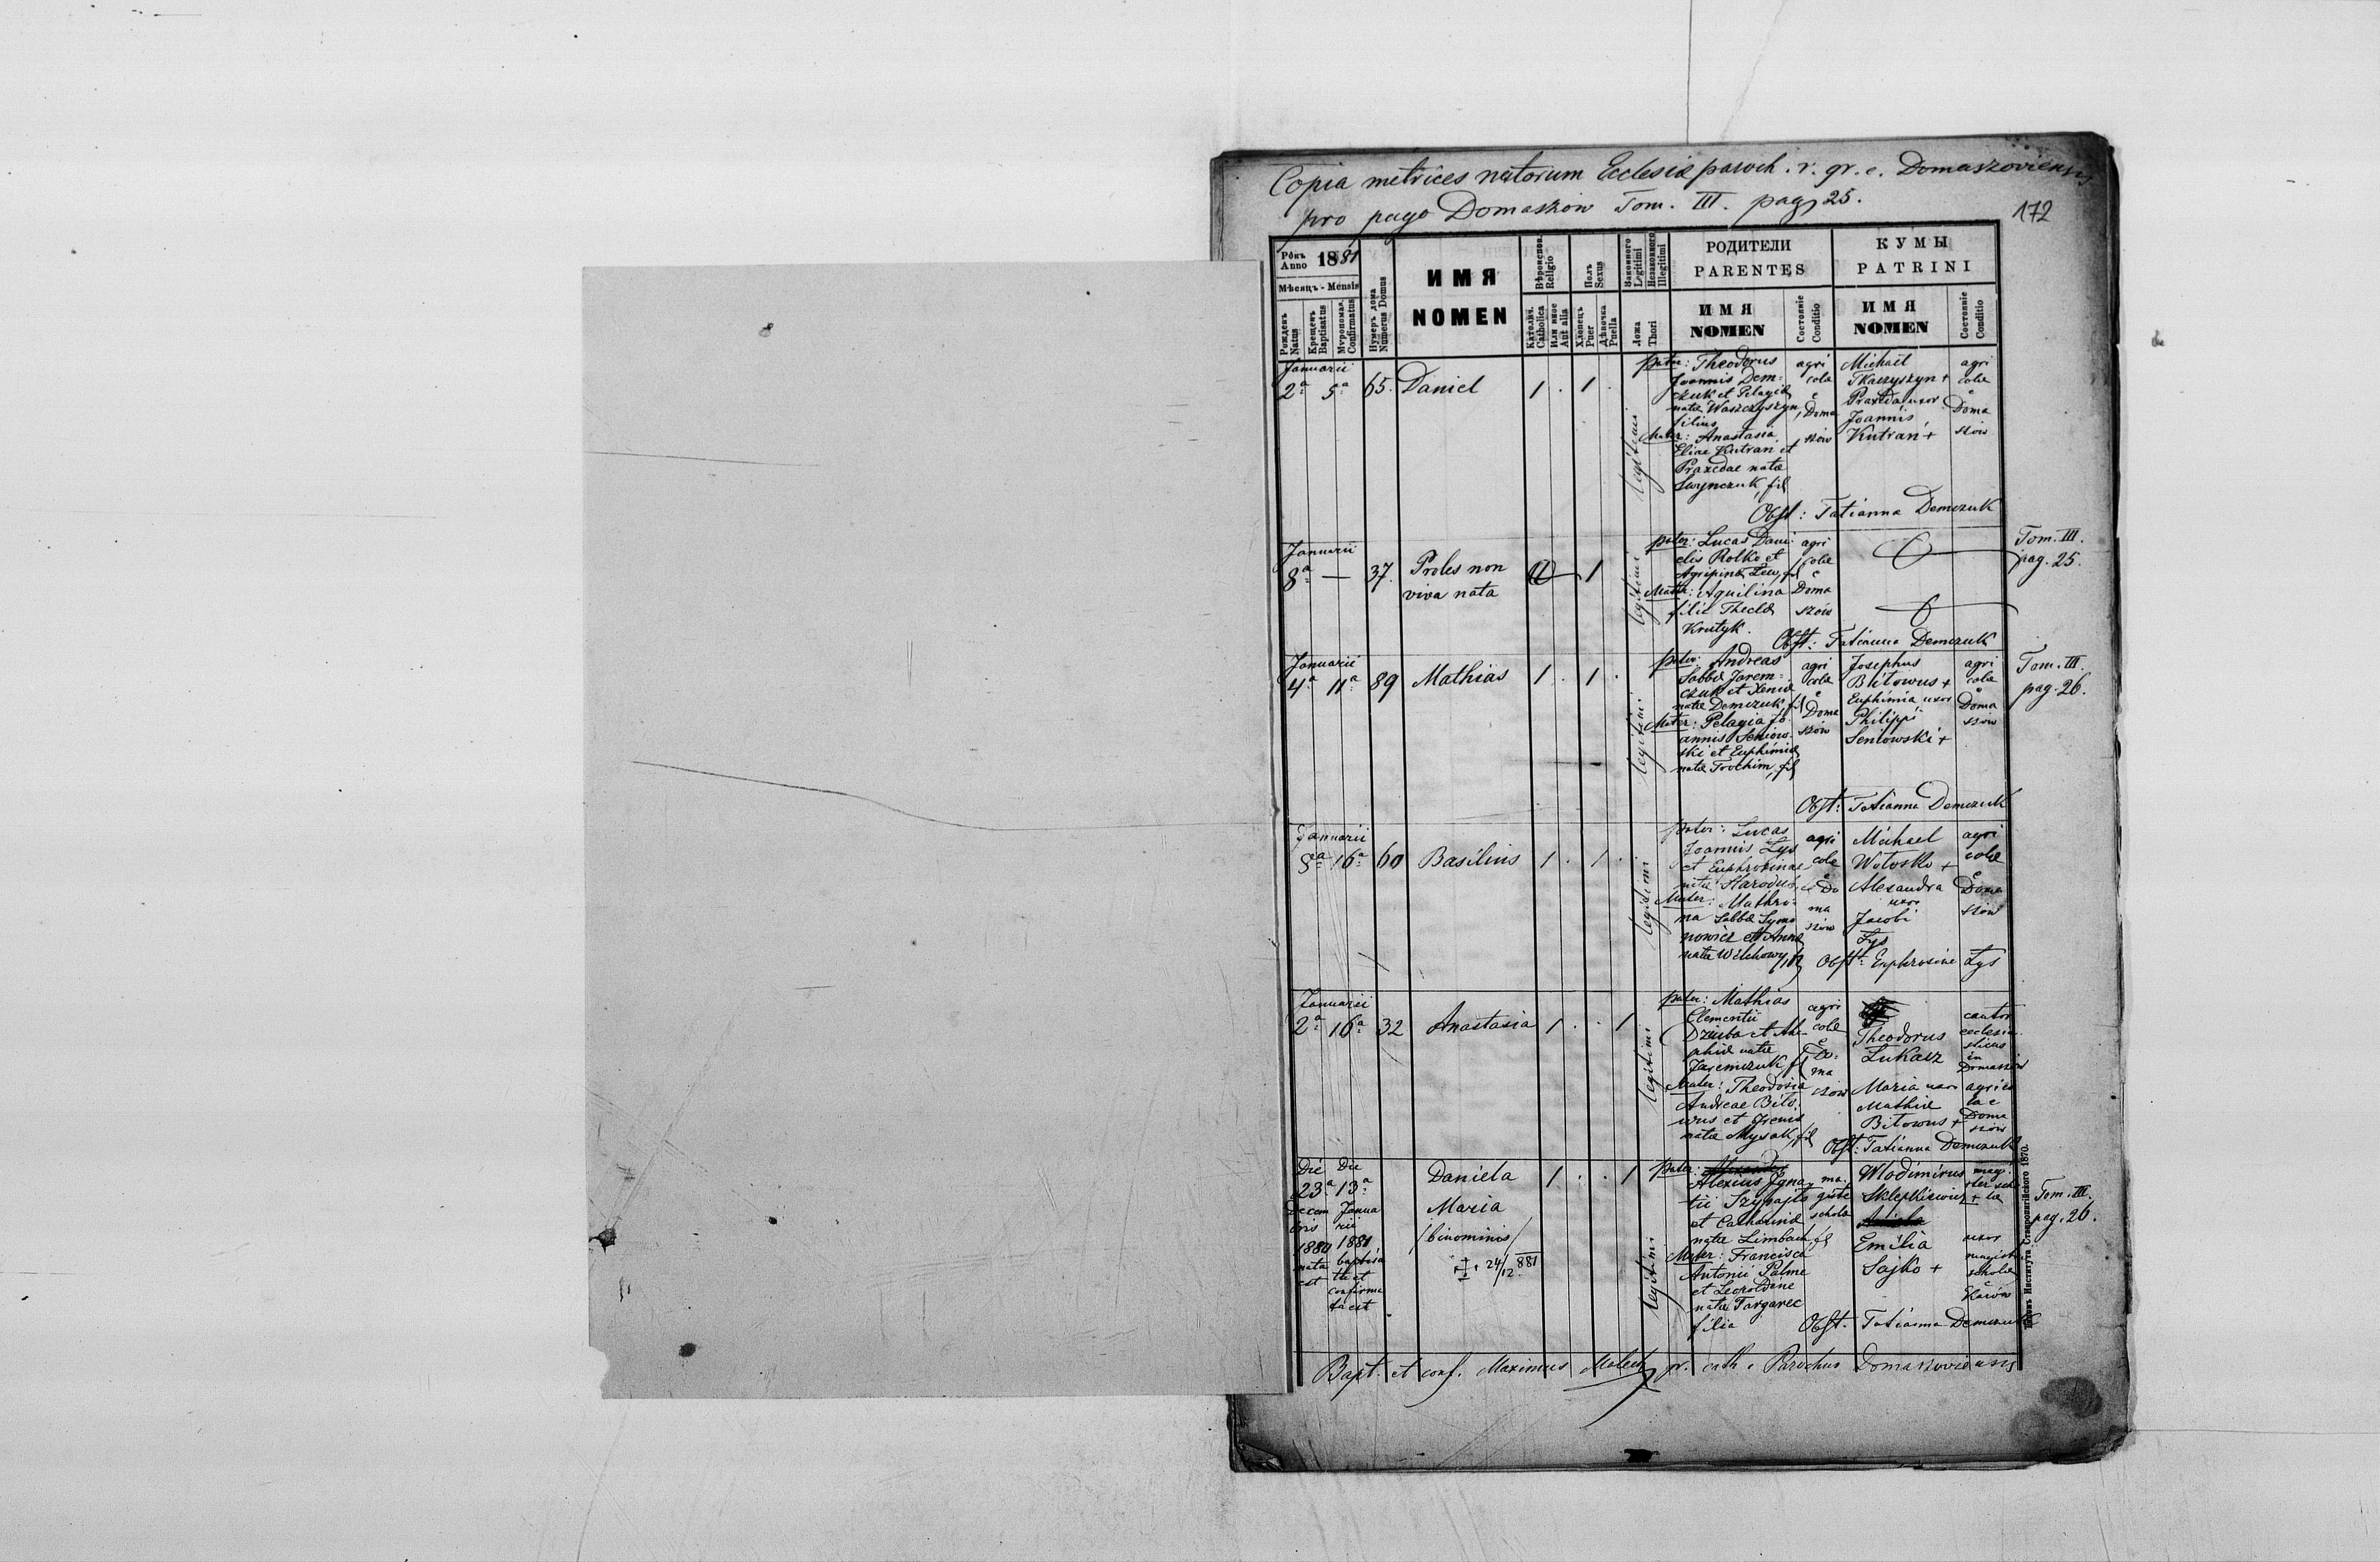 Copia metrices natorum Ecclesiæ paroch. r. gr. c. Domaszoviensis
pro pago Domaszow Tom. III. pag 25.
172
Рôкъ Anno 1881
Мѣсяць - Mensis
Рожденъ Natus
Крещенъ Baptisatus
Мѵропомаз. Confirmatus
Нумеръ дома Numerus Domus
ИМЯ
NOMEN
Вѣроиспов. Religio
Католич. Catholica
Или иное Aut alia
Полъ Sexus
Хлопецъ Puer
Дѣвочка Puella
Законного Legitimi
Незаконного Illegitimi
Ложа Thori
РОДИТЕЛИ
PARENTES
ИМЯ
NOMEN
Состояніе Conditio
КУМЫ
PATRINI
ИМЯ
NOMEN
Состояніе Conditio
Januarii
2ª 5ª 65. Daniel 1 . 1 .
legitimi
pater: Theodorus
Joannis Dem-
czuk et Pelagiæ
natæ Waszczyszyn,
filius
Mater: Anastasia
Eliae Kutran et
Praxedae natæ
Swynczuk, fil
agri
colæ
è
Doma
szów
Michael
Tkaczyszyn +
Praxeda uxor
Joannis
Kutran +
agri
colæ
è
Doma
szów
Obst: Tatianna Demczuk
Januarii
8ª — 37. Proles non
viva nata
1
legitimi
pater: Lucas Dani-
elis Rolko et
Agripinæ Lew, fil
Mater: Aquilina
filia Theclæ
Krutyk.
agri
colæ
è
Doma
szów
Tom. III.
pag. 25.
Obst: Tatianna Demczuk
Januarii
4ª 11ª 89 Mathias 1 . 1 .
legitimi
pater: Andreas
Sabbæ Jarem-
czuk et Xeniæ
natæ Demczuk, fil
Mater: Pelagia Jo-
annis Seniow-
ski et Euphimiæ
natæ Trochim, fil
agri
colæ
è
Doma
szów
Josephus
Bitowus +
Euphimia uxor
Philippi
Seniowski +
agri
colæ
è
Doma
szów
Tom. III.
pag. 26.
Obst: Tatianna Demczuk
Januarii
8ª 16ª 60 Basilius 1 . 1 .
legitimi
pater: Lucas
Joannis Lys
et Euphrosinae
natæ Starodub,
Mater: Mathro-
na Sabbæ Symo
nowicz et Annæ
natæ
agri
colæ
è Do
ma
szów
Michael
Wołosko +
Alexandra
uxor
Jacobi
Lys
agri
colæ
è
Doma
szów
Obst: Euphrosine Lys
Januarii
2ª 16ª 32 Anastasia 1 . . 1
legitimi
pater: Mathias
Clementii
Dziuba et
natæ
Jaremczuk, fil
Mater: Theodosia
Andreae Bito-
wus et Irenæ
natæ Mysak, fil
agri
colæ
è
Do-
ma
szów
Theodorus
Lukacz
Maria uxor
Mathiæ
Bitowus +
cantor
ecclesia
sticus
in
Domaszów
agrico
la è
Doma
szów
Obst: Tatianna Demczuk
Die Die
23ª 13ª
Decem Janua
bris rii
1880 1881
nata baptisa
est ta et
confirma
ta est
Daniela
Maria
/binominis/
24/12 881
1 . . 1
legitimi
pater:
Alexius Igna
tii Szypajło
et Catharinæ
natæ Limbach, fil
Mater: Francisca
Antonii Palme
et Leopoldine
natæ Targarec
filia
ma-
gister
scholæ
Wlodimirus
Sklepkiewicz +
Emilia
Sajko +
magi-
ster scho
læ
uxor
magistri
scholæ
è
Karów
Tom. III.
pag. 26.
Obst. Tatianna Demczuk
Bapt. et conf. Maximus Melech gr. cath. Parochus Domaszoviensis
Института Ставропигійского 1870.